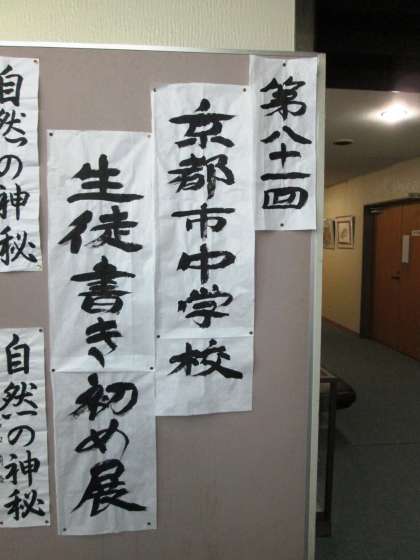 第八十一回
京都市中学校
生徒書き初め展
自然の神秘
自然の神秘